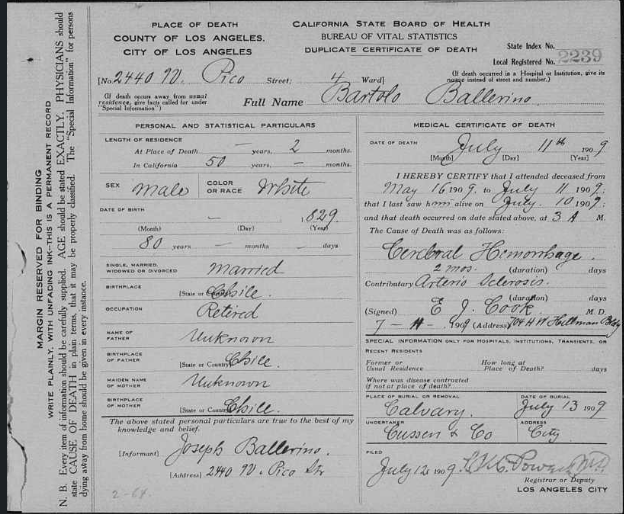 PLACE OF DEATH
COUNTY OF LOS ANGELES,
CITY OF LOS ANGELES
CALIFORNIA STATE BOARD OF HEALTH
BUREAU OF VITAL STATISTICS
DUPLICATE CERTIFICATE OF DEATH
State Index No.
Local Registered No. 2239
[No. 2440 W. Pico Street; 4 Ward]
(If death occurs away from usual residence, give facts called for under "Special Information")
(If death occurred in a Hospital or Institution, give its name instead of street and number.)
Full Name Bartolo Ballerino
PERSONAL AND STATISTICAL PARTICULARS
LENGTH OF RESIDENCE
At Place of Death — years 2 months.
In California 50 years — months.
SEX Male COLOR OR RACE White
DATE OF BIRTH
— , 1829
(Month) (Day) (Year)
80 years — months — days
SINGLE, MARRIED, WIDOWED OR DIVORCED Married
BIRTHPLACE
(State or Country) Chile.
OCCUPATION Retired
NAME OF FATHER Unknown
BIRTHPLACE OF FATHER
(State or Country) Chile
MAIDEN NAME OF MOTHER Unknown
BIRTHPLACE OF MOTHER
(State or Country) Chile
The above stated personal particulars are true to the best of my knowledge and belief.
[Informant] Joseph Ballerino.
[Address] 2440 W. Pico Str
2-68
MEDICAL CERTIFICATE OF DEATH
DATE OF DEATH
July 11th 1909
[Month] [Day] (Year)
I HEREBY CERTIFY that I attended deceased from
May 16 1909, to July 11 1909;
that I last saw him alive on July. 10 1909;
and that death occurred on date stated above, at 3 A M.
The Cause of Death was as follows:
Cerebral Hemorrhage.
2 mos. (duration) days
Contributory Arterio Sclerosis
(duration) days
(Signed) E J Cook M. D.
1909 (Address) Hellman Bldg
SPECIAL INFORMATION ONLY FOR HOSPITALS, INSTITUTIONS, TRANSIENTS, OR RECENT RESIDENTS
Former or Usual Residence
How long at Place of Death? days
Where was disease contracted if not at place of death?
PLACE OF BURIAL OR REMOVAL
Calvary.
DATE OF BURIAL
July 13 1909
UNDERTAKER
Cussen & Co
ADDRESS
City
FILED
July 12 1909.
Registrar or Deputy
LOS ANGELES CITY
MARGIN RESERVED FOR BINDING
WRITE PLAINLY, WITH UNFADING INK—THIS IS A PERMANENT RECORD
N. B. Every item of information should be carefully supplied. AGE should be stated EXACTLY. PHYSICIANS should
state CAUSE OF DEATH in plain terms, that it may be properly classified. The "Special Information" for persons
dying away from home should be given in every instance.